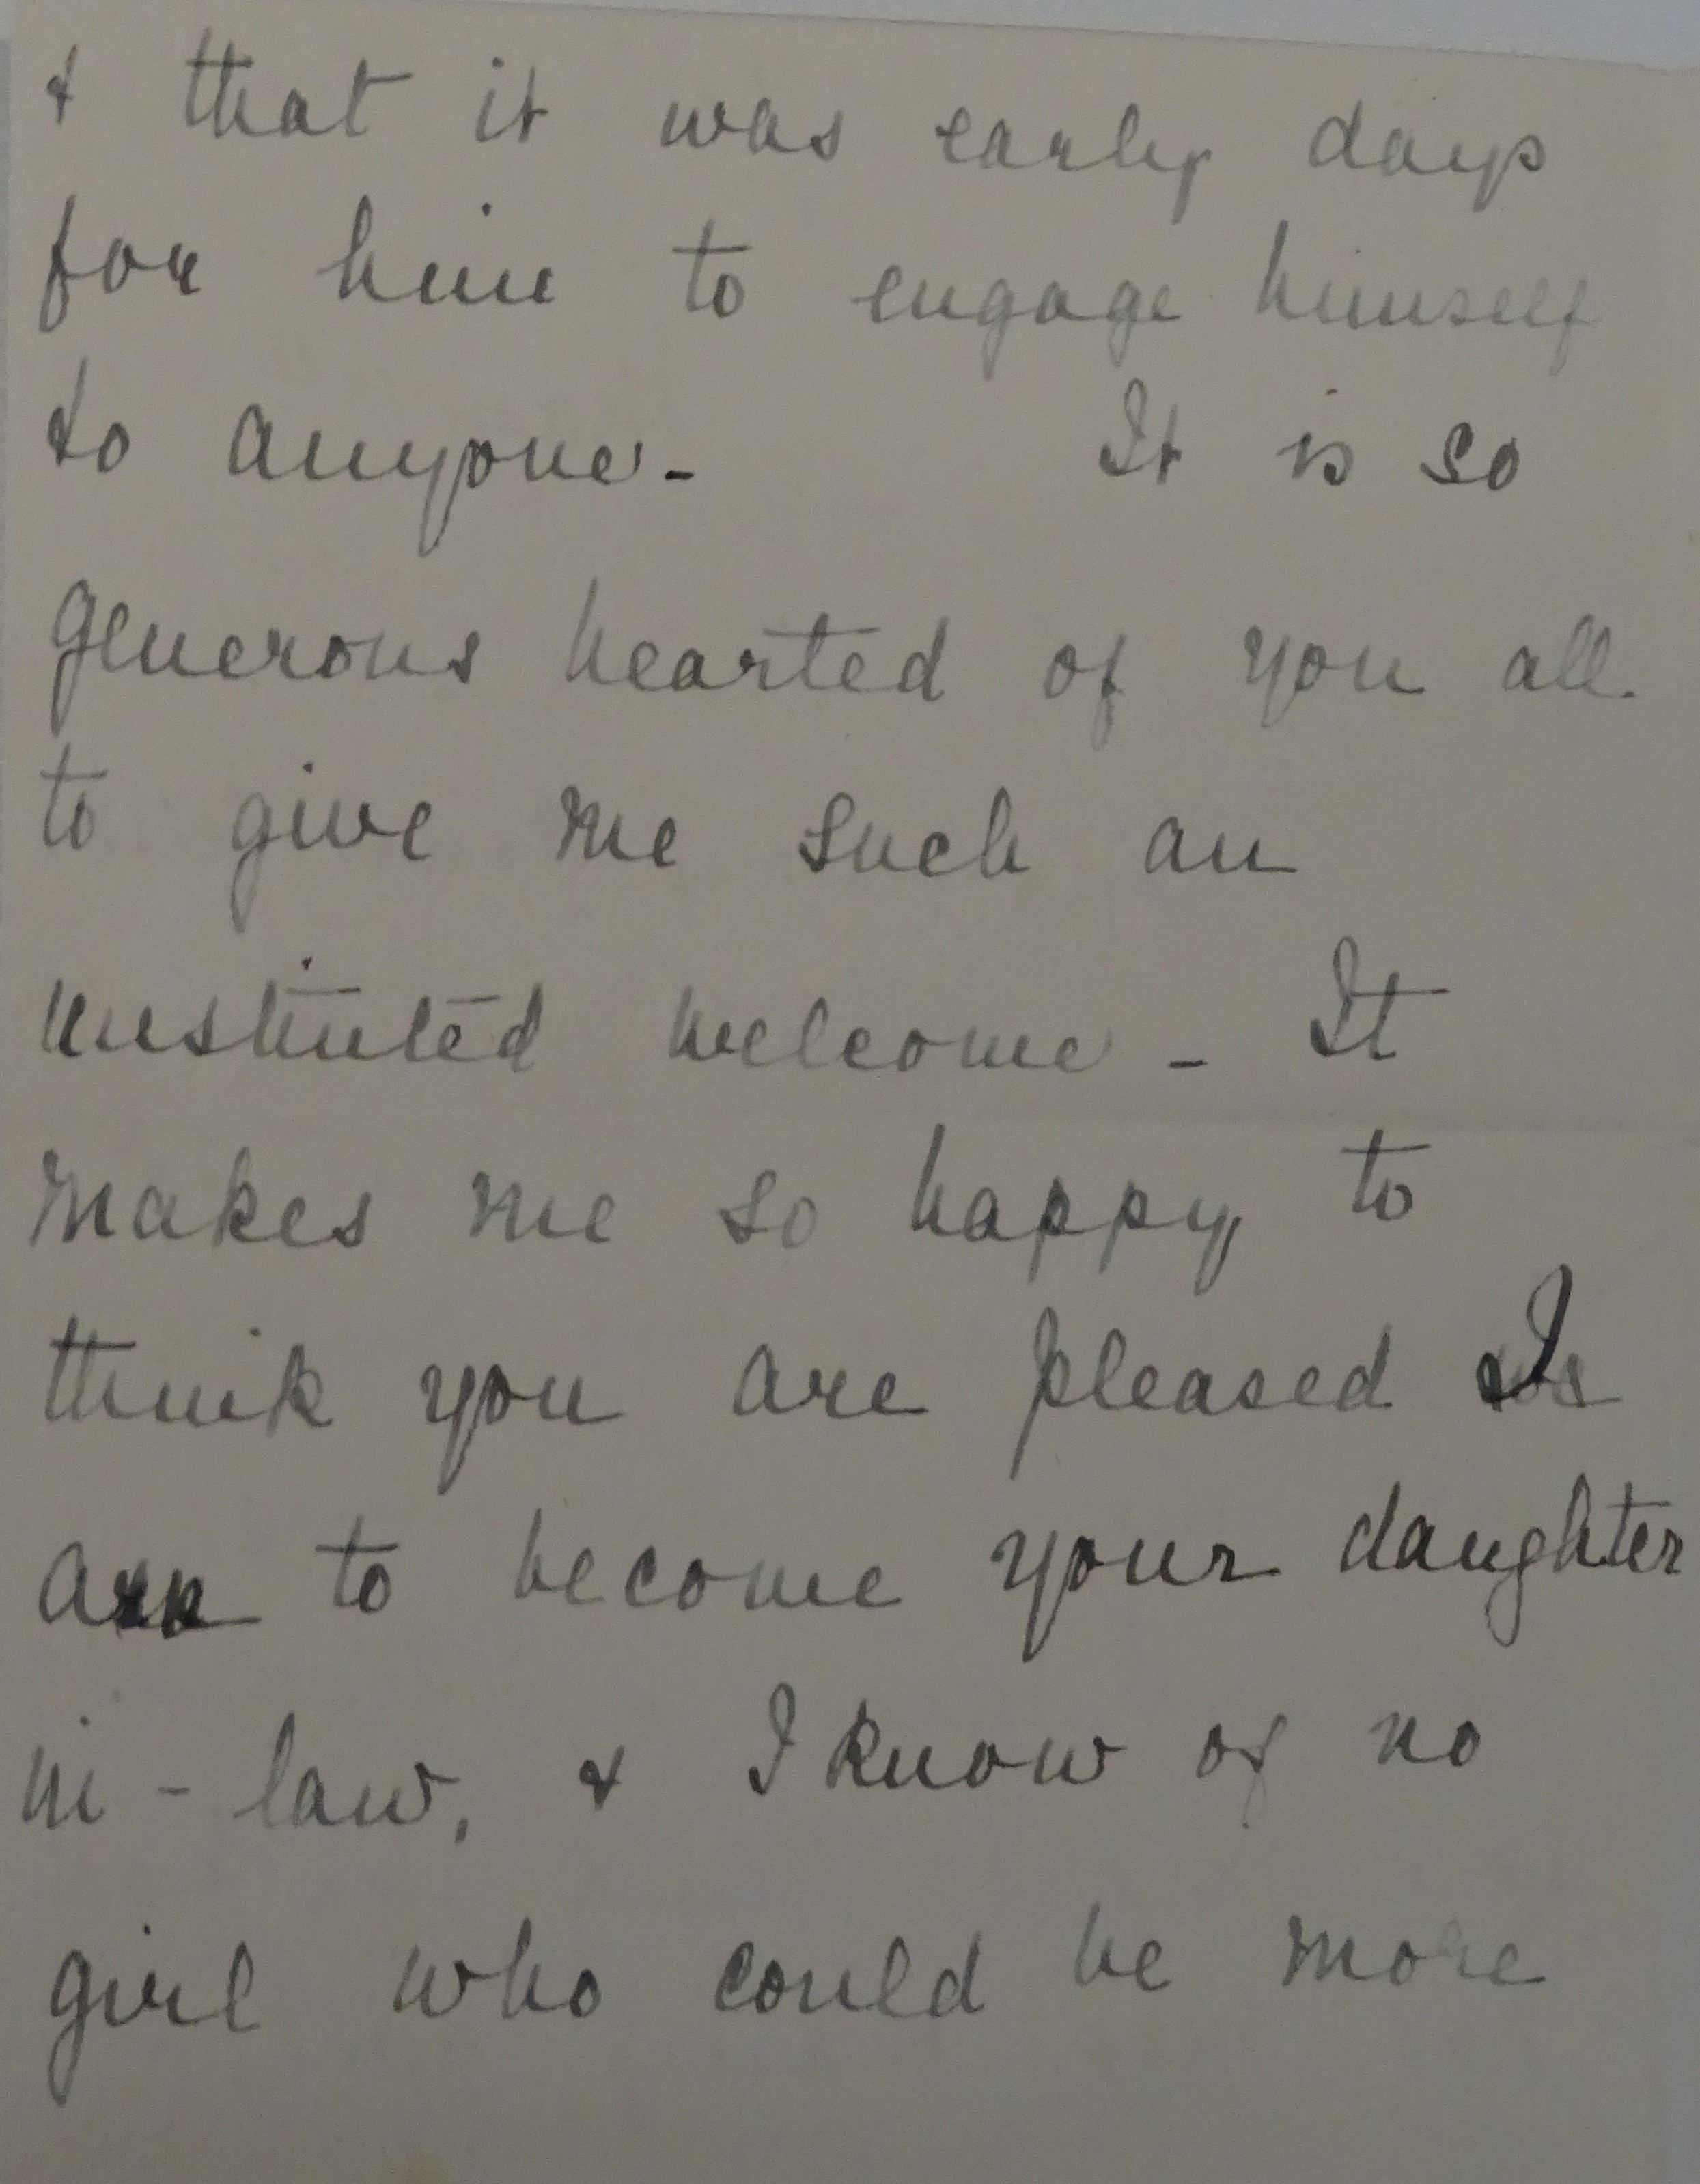 & that it was early days
for him to engage himself
to anyone - It is so
generous hearted of you all
to give me such an
unstinted welcome - It
makes me so happy, to
think you are pleased I
am to become your daughter
in - law, & I know of no
girl who could be more